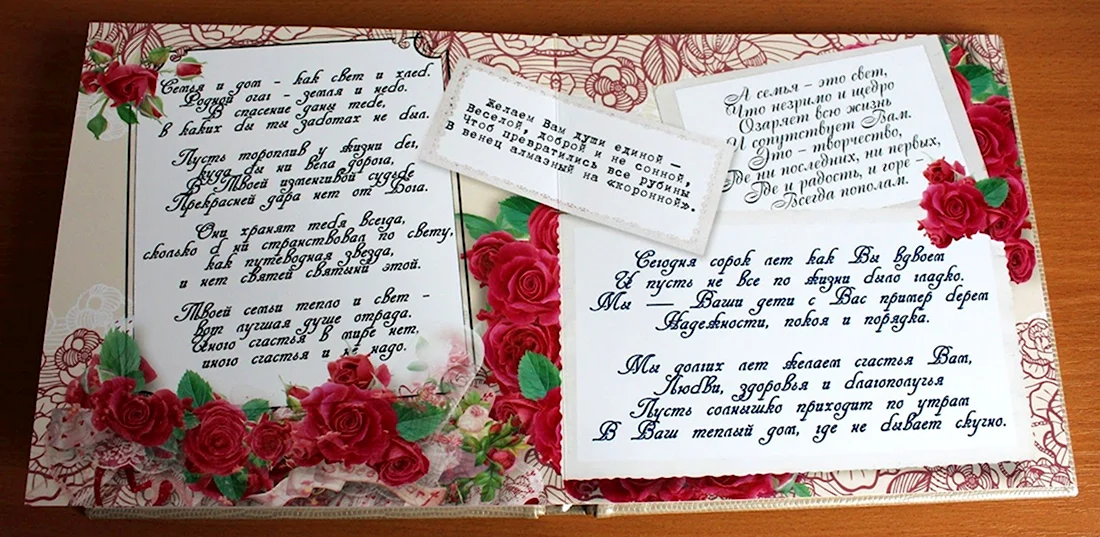 Семья и дом - как свет и хлеб.
Родной очаг - земля и небо.
В спасение даны тебе,
в каких бы ты заботах не был.
Пусть тороплив у жизни бег,
куда бы ни вела дорога,
В Твоей изменгивой судьбе
Прекрасней дара нет от Бога.
Они хранят тебя всегда,
сколько б ни странствовал по свету,
как путеводная звезда,
и нет святей святыни этой.
Твоей семьи тепло и свет -
вот лучшая душе отрада.
Иного счастья в мире нет,
иного счастья и не надо.
Желаем Вам души единой —
Веселой, доброй и не сонной,
Чтоб превратились все рубины
В венец алмазный на «коронной».
А семья - это свет,
Что незримо и щедро
Озаряет всю жизнь
И сопутствует Вам.
Это - творчество,
Где ни последних, ни первых,
Где и радость, и горе -
Всегда пополам.
Сегодня сорок лет как Вы вдвоем
И пусть не все по жизни было гладко.
Мы — Ваши дети с Вас пример берем
Надежности, покоя и порядка.
Мы долгих лет желаем счастья Вам,
Любви, здоровья и благополучья
Пусть солнышко приходит по утрам
В Ваш теплый дом, где не бывает скучно.